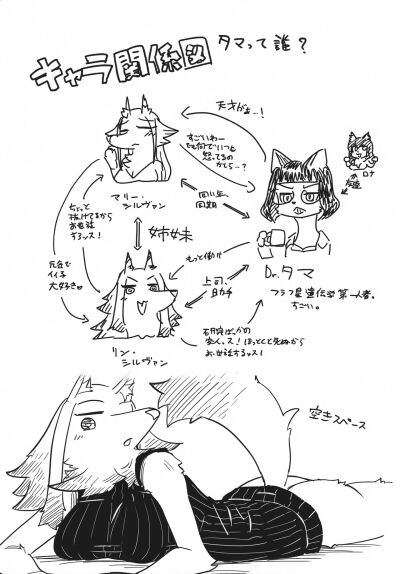 キャラ関係図
タマって誰?
天才がぁ…!
すごいわー
でも何でいつも
怒ってるの
かしら…?
ロナ
友達
マリー・
シルヴァン
同い年、
同期
ちょっと
抜けてるから
お世話
するッス!
姉妹
もっと働け
Dr.タマ
元気で
イイ子
大好き
上司、
部下
フラフ星遺伝学第一人者。
すごい。
リン・
シルヴァン
研究ばっかの
変人ッス!ほっとくと死ぬから
お世話するッス!
空きスペース